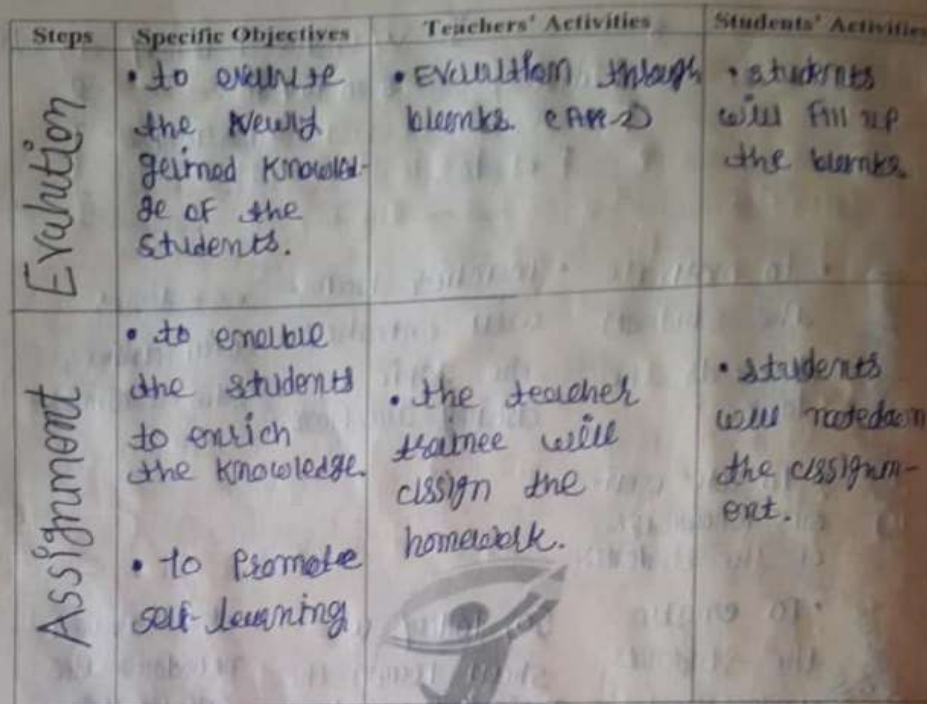 Steps
Specific Objectives
Teachers' Activities
Students' Activities
Evalution
• to evaluate
the Newly
gained Knowled-
ge of the
Students.
• Evaluation through
blanks.
• students
will fill up
the blanks.
Assignment
• to enable
the students
to enrich
the knowledge.
• to Promote
self-learning
• the teacher
trainee will
assign the
homework.
• students
will notedown
the assignm-
ent.